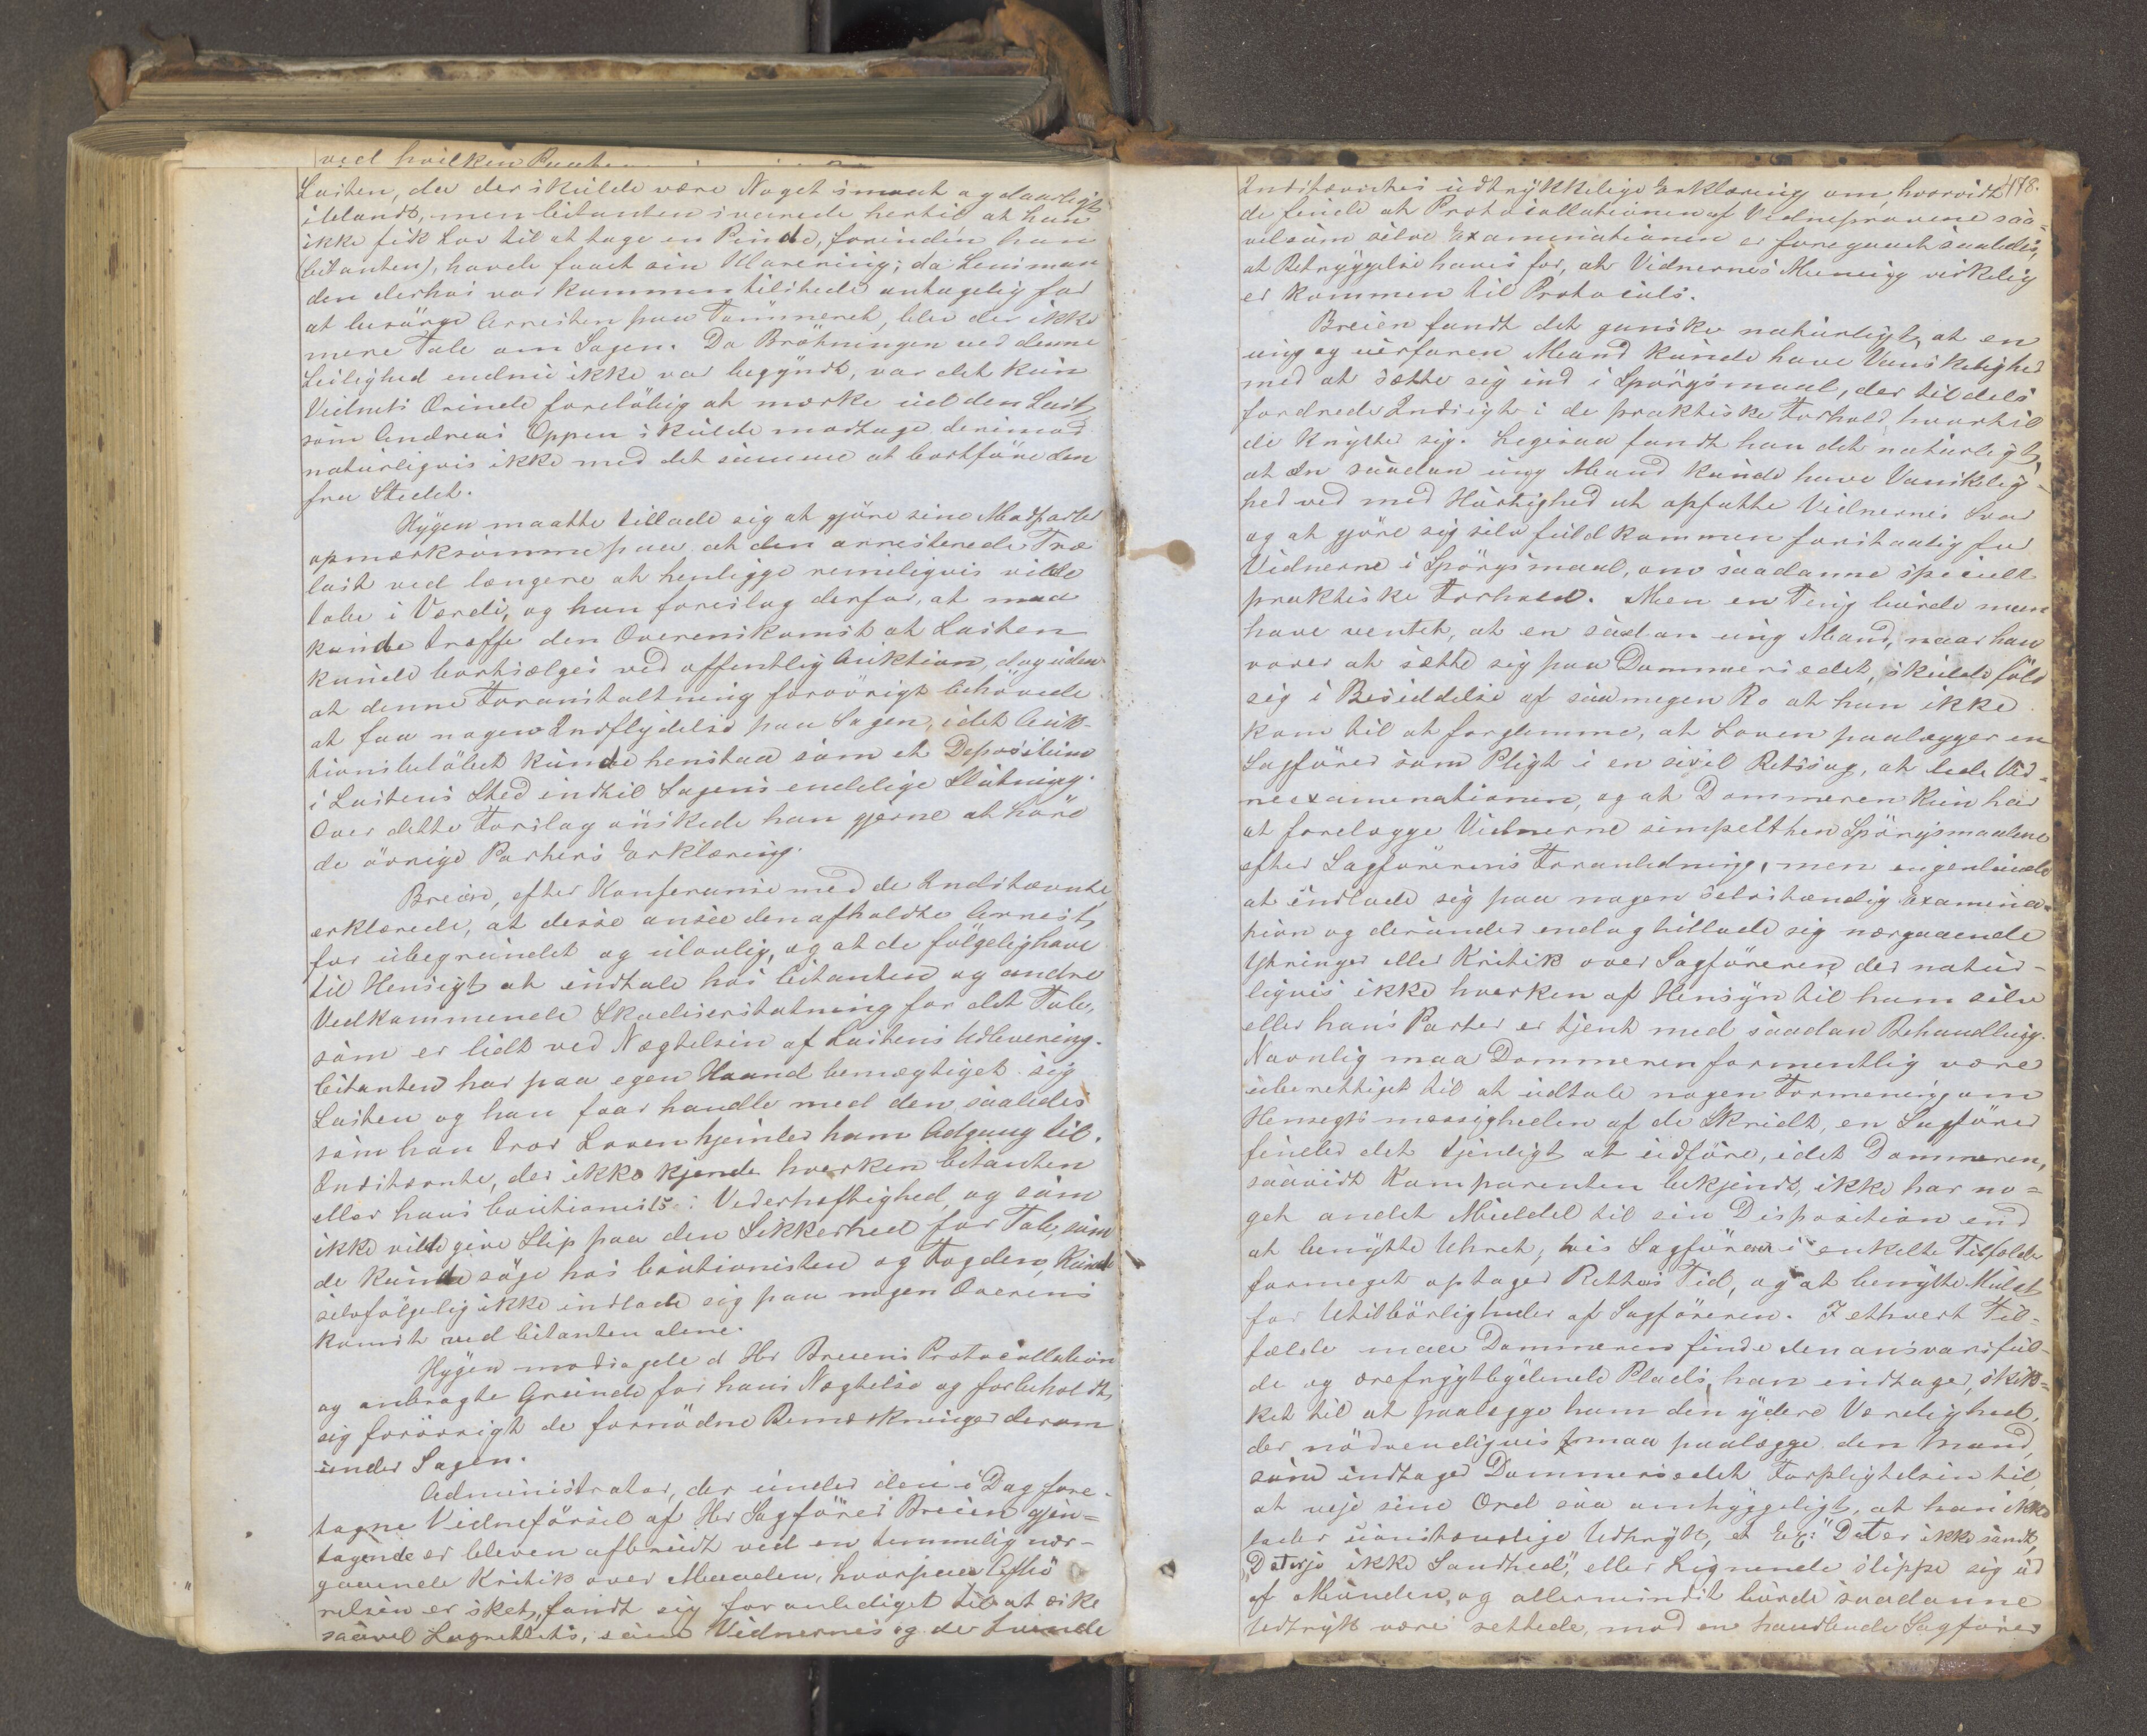 ved hvilken
Lasten, da der skulde være Noget smaat og daarligt
iblandt, men Citanten svarede hertil at han
ikke fik Lov til at tage en Pinde, forinden han
(Citanten), havde faaet sin Klarering; da Lensman
den derhos var kommen tilstede antagelig for
at besørge Arresten paa Tømmeret, blev der ikke
mere Tale om Sagen. Da Brøhningen ved denne
Leilighed endnu ikke var begyndt, var det kun
Vidnets Ærinde foreløbig at mærke ud den Last,
som Andreas Oppen skulde modtage, derimod
naturligvis ikke med det samme at bortføre den
fra Stedet.
Hygen maatte tillade sig at gjøre sine Modparter
opmærksomme paa at den arresterede Træ
last ved længere at henligge rimeligvis vilde
tabe i Værdi, og han foreslog derfor, at man
kunde træffe den Overenskomst at Lasten
kunde bortsælges ved offentlig Auktion, dog uden
at denne Foranstaltning forøvrigt behøvede
at faa nogen Indflydelse paa Sagen, idet Auk-
tionsbeløbet kunde henstaa som et Depositum
i Lastens Sted indtil Sagens endelige Slutning.
Over dette Forslag ønskede han gjerne at høre
de øvrige Parters Erklæring.
Breien, efter Konferanse med de Indstævnte,
erklærede, at disse ansee den afholdte Arrest,
for ubegrundet og ulovlig, og at de følgelig have
til Hensigt at indtale hos Citanten og andre
Vedkommende Skadeserstatning for det Tab,
som er lidt ved Nægtelsen af Lastens Udlevering.
Citanten har paa egen Haand bemægtiget sig
Lasten og han faar handle med den saaledes
som han tror Loven hjemler ham Adgang til.
Indstævnte, der ikke kjende hverken Citanten
eller hans Cautionists Vederheftighed, og som
ikke vilde give Slip paa den Sikkerhed for Tab, som
de kunde søge hos Cautionisten og Fogden, kunde
selvfølgelig ikke indlade sig paa nogen Overens
komst med Citanten alene.
Hygen modsagde d Hr Breiens Protocollation
og anbragte Grunde for hans Nægtelse og forbeholdt
sig forøvrigt de fornødne Bemærkninger derom
under Sagen.
Administrator, der under den i Dag fore-
tagne Vidneførsel af Hr Sagfører Breien gjen=
tagende er bleven afbrudt ved en temmelig nær-
gaaende Kritik over Maaden, hvorpaa Afhø
relsen er sket, fandt sig foranlediget til at æske
saavel Lagrettets, som Vidnernes og de
478.
Indstævntes udtrykkelige Erklæring om, hvorvidt
de finde at Protocollationen af Vidneprovene saa=
vel som selve Examinationen er foregaaet saaledes,
at Betryggelse haves for, at Vidnernes Mening virkelig
er kommen til Protocols.
Breien fandt det ganske naturligt, at en
ung og uerfaren Mand kunde have Vanskelighed
med at sætte sig ind i Spørgsmaal, der tildels
fordrede Indsigt i de praktiske Forhold, hvortil
de knytte sig. Ligesaa fandt han det naturligt,
at en saadan ung Mand kunde have Vanskelig-
hed ved med Hurtighed at opfatte Vidnernes Svar
og at gjøre sig selv fuldkommen forstaaelig for
Vidnerne i Spørgsmaal, om saadanne specielt
praktiske Forhold. Men en Ting burde man
have ventet, at en saadan ung Mand, naar han
vover at sætte sig paa Dommersædet, skulde føle
sig i Besiddelse af saamegen Ro at han ikke
kom til at forglemme, at Loven paalægger en
Sagfører som Pligt i en sivil Retssag, at lede Vid-
neexaminationen, og at Dommeren kun har
at forelægge Vidnerne simpelthen Spørgsmaalene
efter Sagførerens Foranledning, men ingenlunde
at indlade sig paa nogen selvstændig Examina-
tion og derunder endog tillade sig nærgaaende
Ytringer eller Kritik over Sagføreren, der natur-
ligvis ikke hverken af Hensyn til ham selv
eller hans Parter er tjent med saadan Behandling.
Navnlig maa Dommeren formentlig være
uberettiget til at udtale nogen Formening om
Hensigtsmæssigheden af de Skridt, en Sagfører
finder det tjenligt at udføre, idet Dommeren,
saavidt Komparenten bekjendt, ikke har no=
get andet Middel til sin Disposition end
at benytte Uhret, hvis Sagføreren i enkelte Tilfælde
formeget optager Rettens Tid, og at benytte Mulct
for Utilbørligheder af Sagføreren. I ethvert Til-
fælde maa Dommeren finde den ansvarsful-
de og ærefrygtbydende Plads, han indtager, skik=
ket til at paalægge ham den ydere Værdighed,
der nødvendigvis maa paalægge den Mand,
som indtager Dommersædet Forpligtelsen til,
at veje sine Ord saa omhyggeligt, at han ikke
lader uanstændige Udtryk, et Ex: "Det er ikke sandt,
"Det er jo ikke Sandhed", eller Lignende slippe sig ud
af Munden, og allermindst burde saadanne
Udtryk være rettede mod en handlende Sagfører